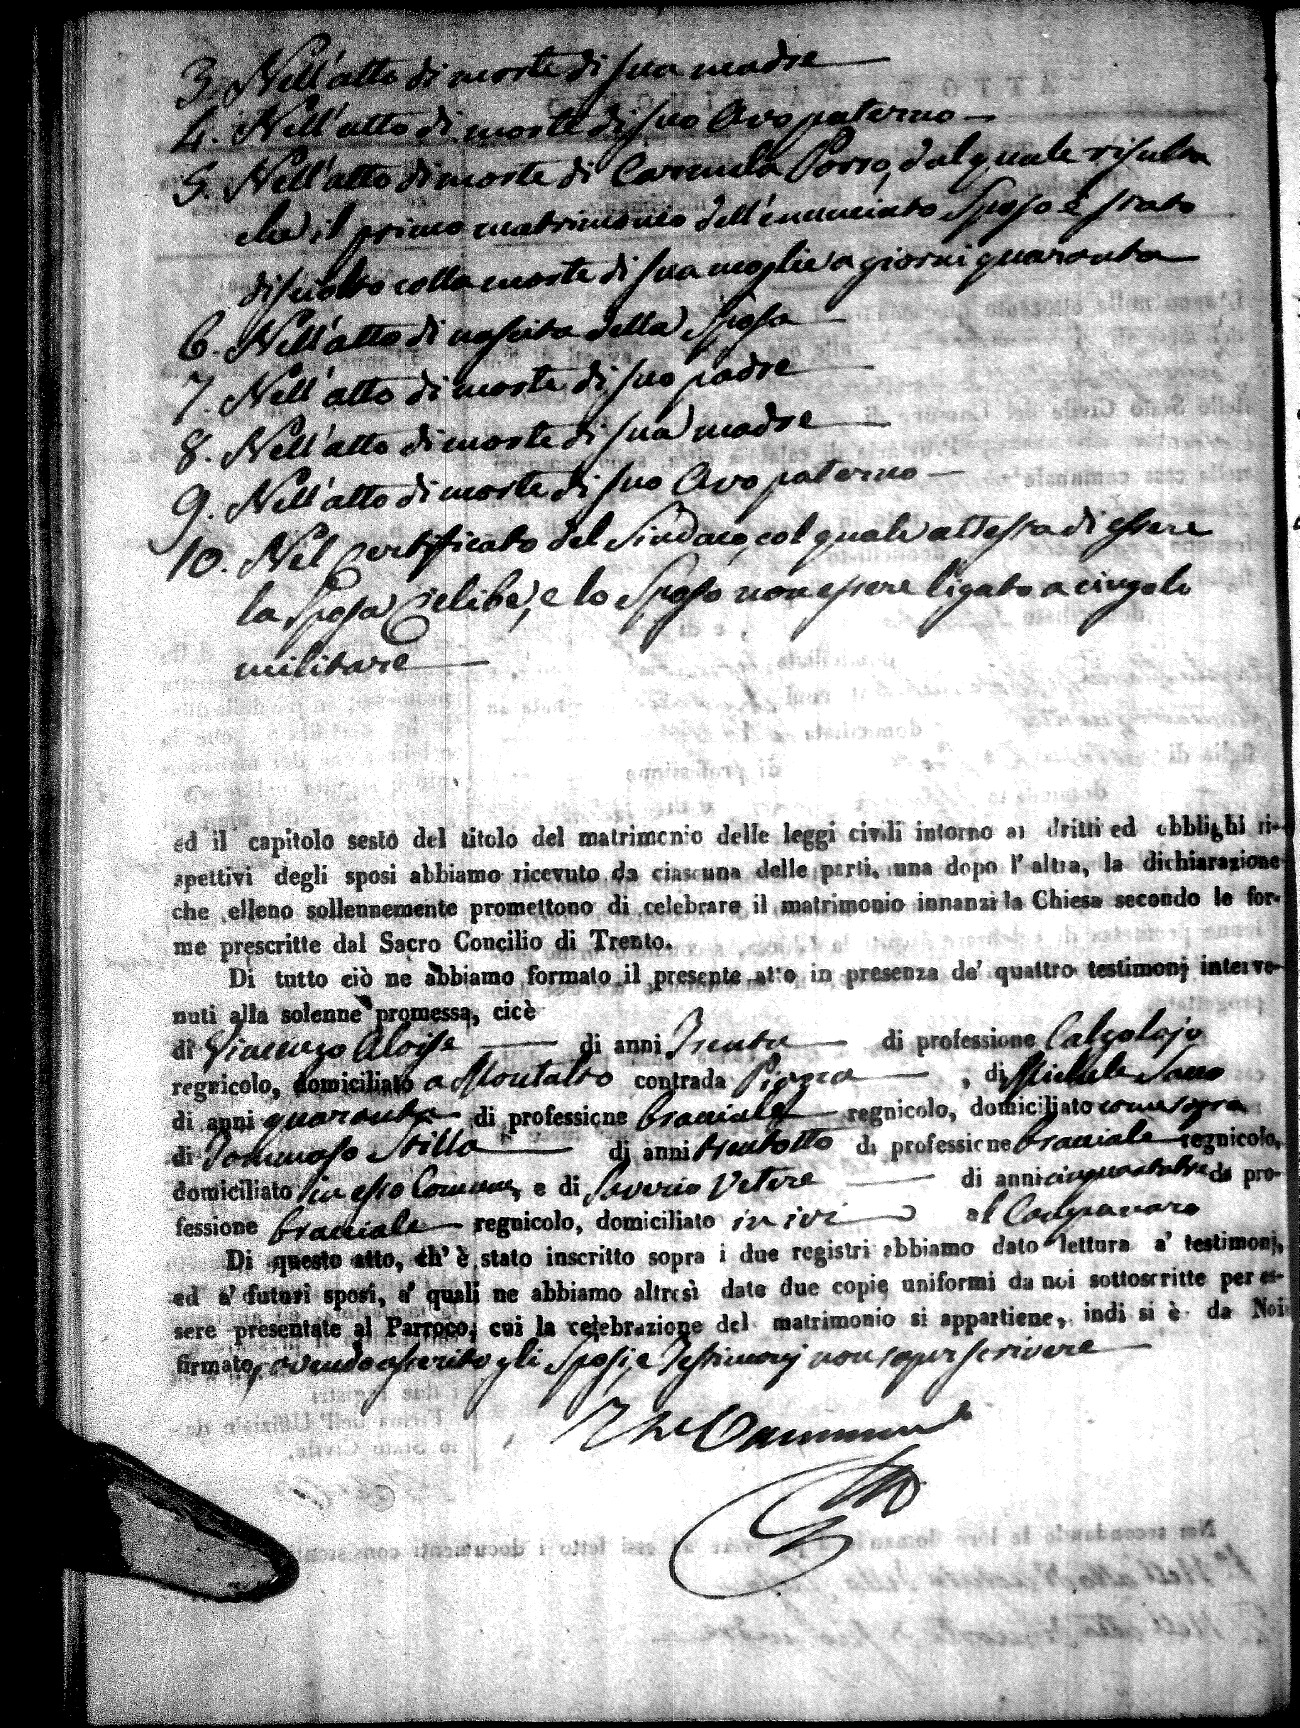 3. Nell'atto di morte di sua madre
4. Nell'atto di morte di suo Avo paterno
5. Nell'atto di morte di Carmela Porro, dal quale risulta
che il primo matrimonio dell'enunciato Sposo è stato
disciolto colla morte di sua moglie a giorni quaranta
6. Nell'atto di nascita della Sposa
7. Nell'atto di morte di suo padre
8. Nell'atto di morte di sua madre
9. Nell'atto di morte di suo Avo paterno
10. Nel Certificato del Sindaco, col quale attesta di essere
la Sposa Celibe, e lo Sposo non essere ligato a cingolo
militare
ed il capitolo sesto del titolo del matrimonio delle leggi civili intorno ai dritti ed obblighi ri-
spettivi degli sposi abbiamo ricevuto da ciascuna delle parti, una dopo l'altra, la dichiarazione
che elleno sollennemente promettono di celebrare il matrimonio innanzi la Chiesa secondo le for-
me prescritte dal Sacro Concilio di Trento.
Di tutto ciò ne abbiamo formato il presente atto in presenza de' quattro testimonj interve-
nuti alla solenne promessa, cioè
di Vincenzo Aloise di anni Trenta di professione Calzolajo
regnicolo, domiciliato a Montalto contrada Piazza, di Michele Sacco
di anni quaranta di professione bracciale regnicolo, domiciliato come sopra
di Tommaso Stillo di anni trentotto di professione bracciale regnicolo,
domiciliato in esso Comune, e di Saverio Vetere di anni cinquantatre di pro-
fessione bracciale regnicolo, domiciliato in ivi al Campanaro
Di questo atto, ch' è stato inscritto sopra i due registri abbiamo dato lettura a' testimonj,
ed a' futuri sposi, a' quali ne abbiamo altresì date due copie uniformi da noi sottoscritte per es-
sere presentate al Parroco, cui la celebrazione del matrimonio si appartiene, indi si è da Noi
firmato, avendo asserito gli Sposi, e Testimonj non saper scrivere